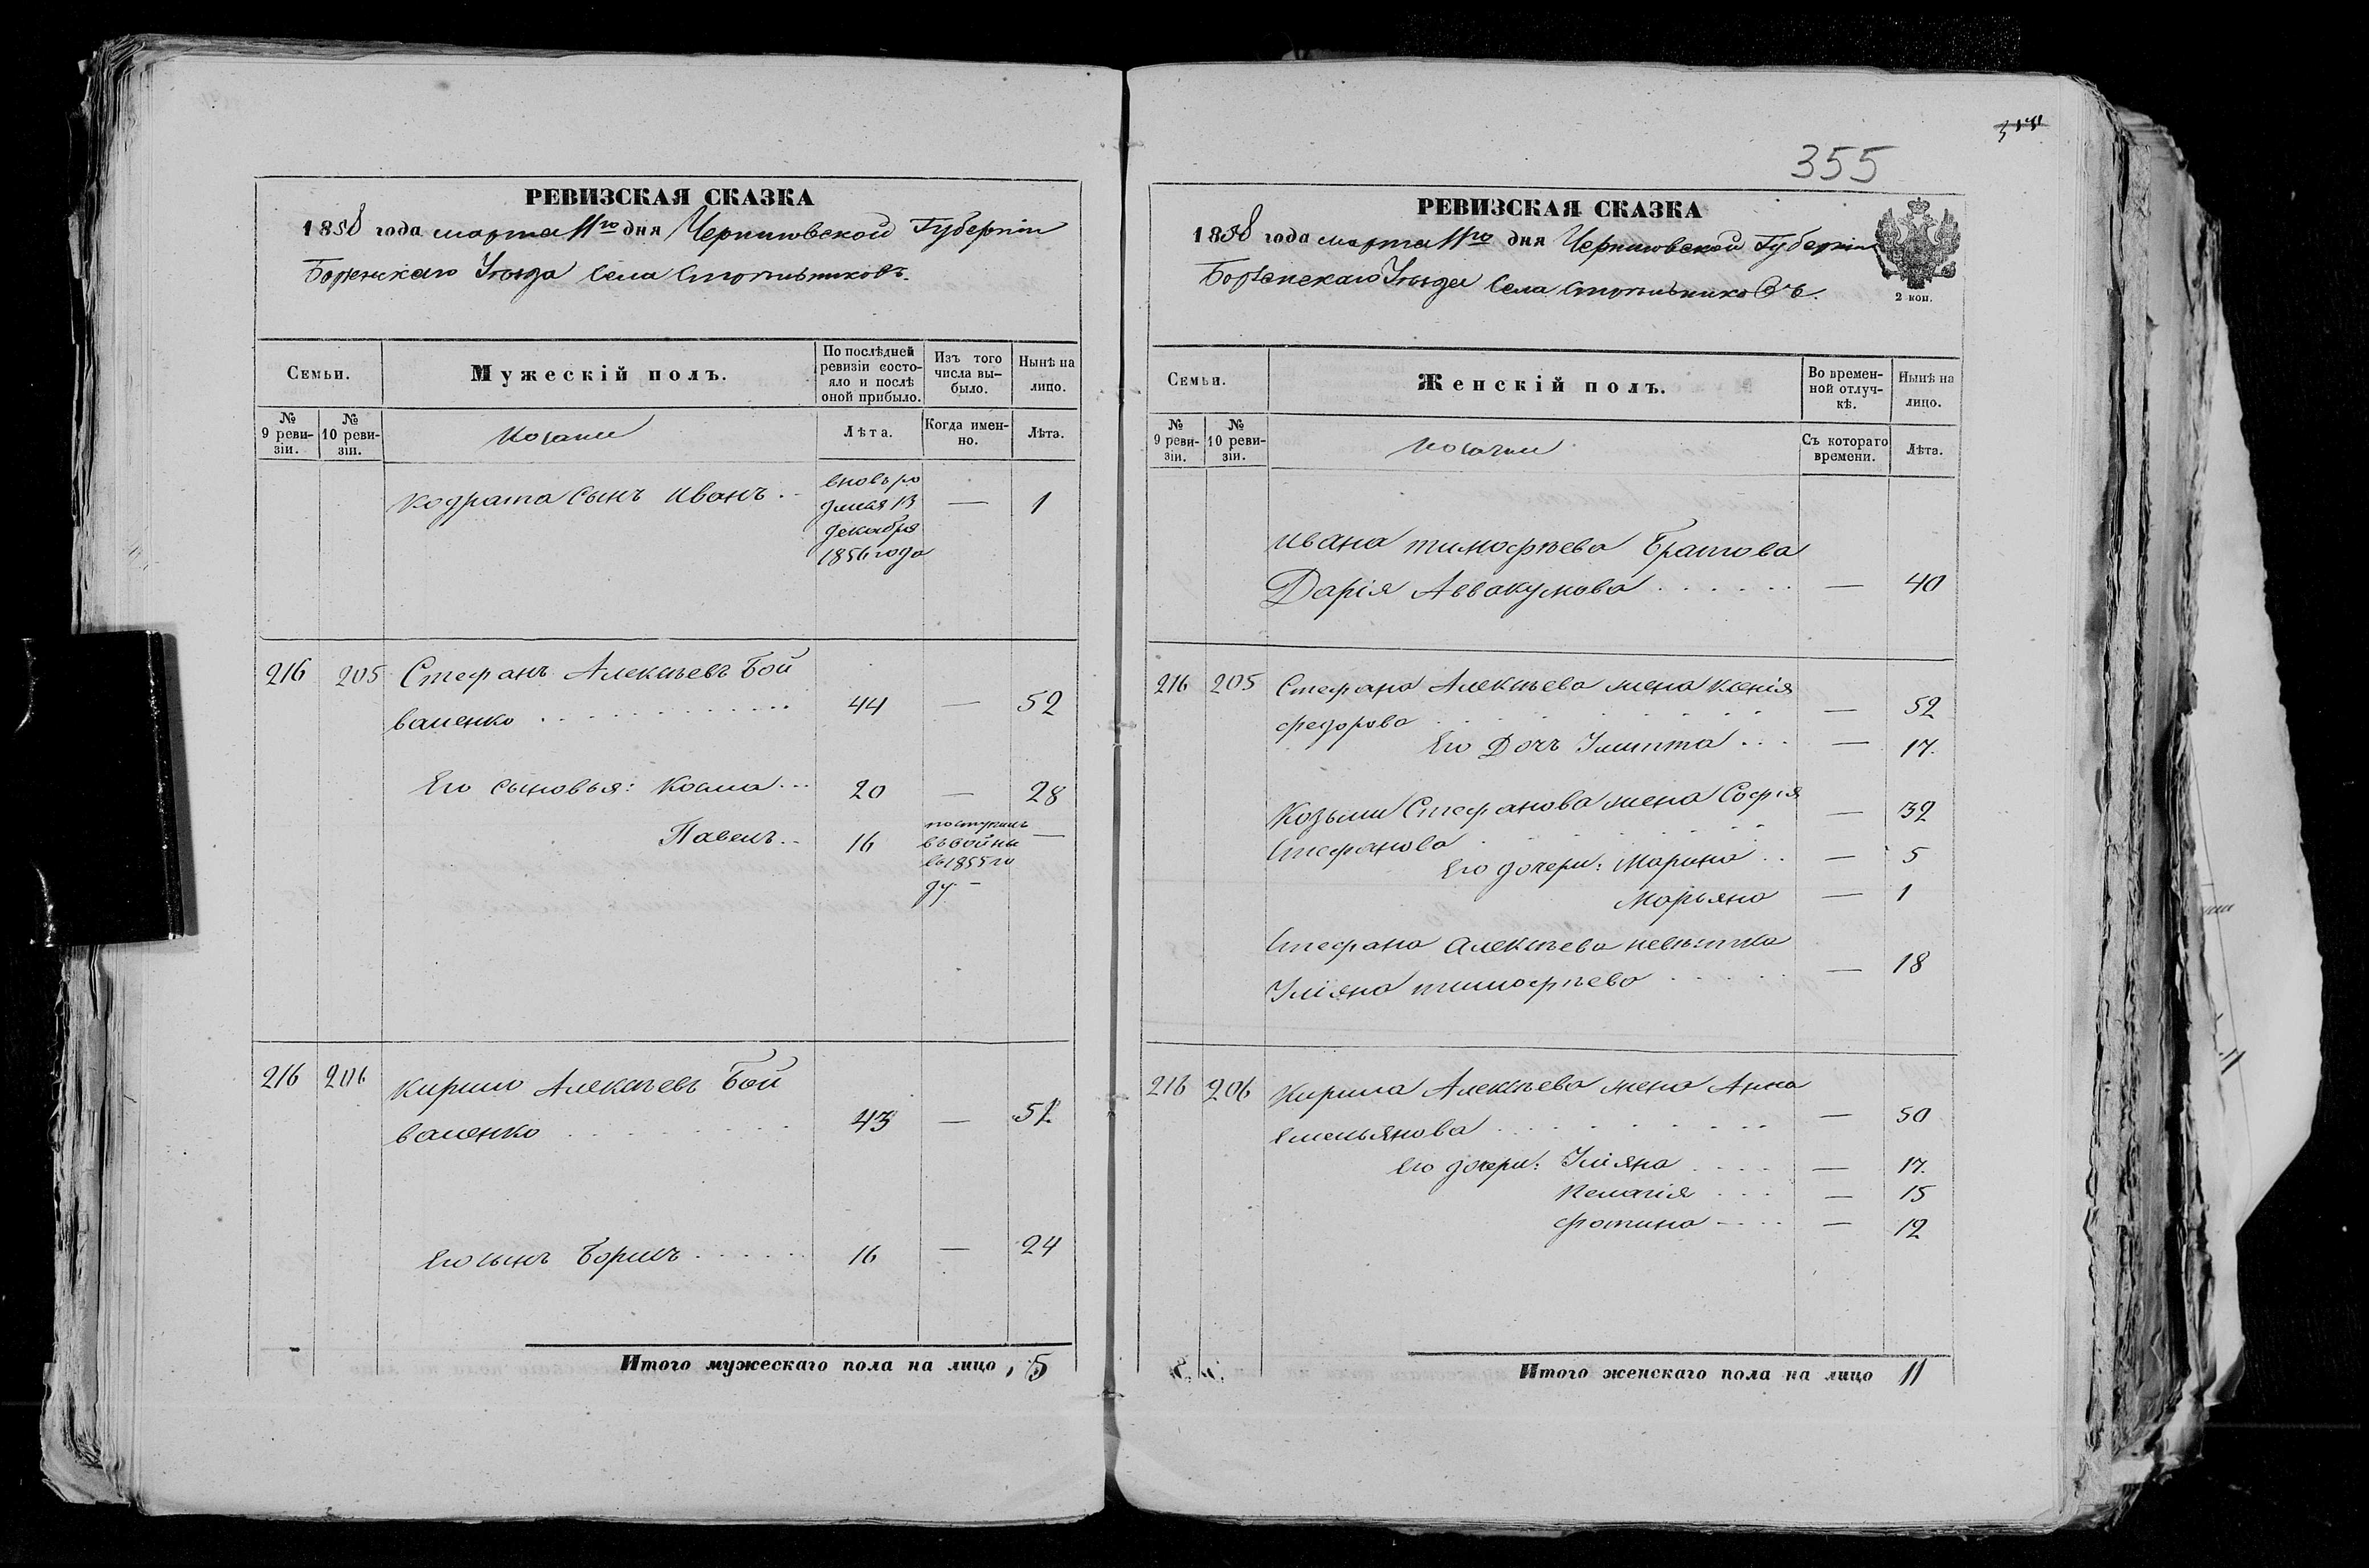 РЕВИЗСКАЯ СКАЗКА
1858 года марта 11го дня Черниговской Губерніи
Борзенскаго Уѣзда Села
Семьи.
Мужескій полъ.
По послѣдней ревизіи состояло и послѣ оной прибыло.
Изъ того числа выбыло.
Нынѣ на лицо.
№ 9 ревизіи.
№ 10 ревизіи.
Козаки
Лѣта.
Когда именно.
Лѣта.
Кодрата Сынъ Иванъ
вновь ро
дился 13
декабря
1856 года
—
1
216 205 Стефанъ Алексѣевъ Бой
валенко 44 — 52
Его сыновья: Косма 20 — 28
Павелъ 16
поступилъ
въ войны
въ 1855 го
ду —
216 206 Кирило Алексѣевъ Бой
валенко 43 — 51
Его сынъ Борисъ 16 — 24
Итого мужескаго пола на лицо 5
355
РЕВИЗСКАЯ СКАЗКА
1858 года марта 11го дня Черниговской Губерніи
Борзенскаго Уѣзда Села
2 коп.
Семьи.
Женскій полъ.
Во временной отлучкѣ.
Нынѣ на лицо.
№ 9 ревизіи.
№ 10 ревизіи.
Козачки
Съ котораго времени.
Лѣта.
Ивана Тимофѣева Братова
Дарія Аввакумова — 40
216 205 Стефана Алексѣева жена Ксенія
Федорова — 52
Его Дочь Улита — 17.
Козьмы Стефанова жена Софія
Стефанова — 32
Его дочери: Марина — 5
Марьяна — 1
Стефана Алексѣева невѣстка
Уліяна Тимофѣева — 18
216 206 Кирила Алексѣева жена Анна
Емельянова — 50
Его дочери: Уліяна — 17.
Пелагія — 15
Фотина — 12
Итого женскаго пола на лицо 11